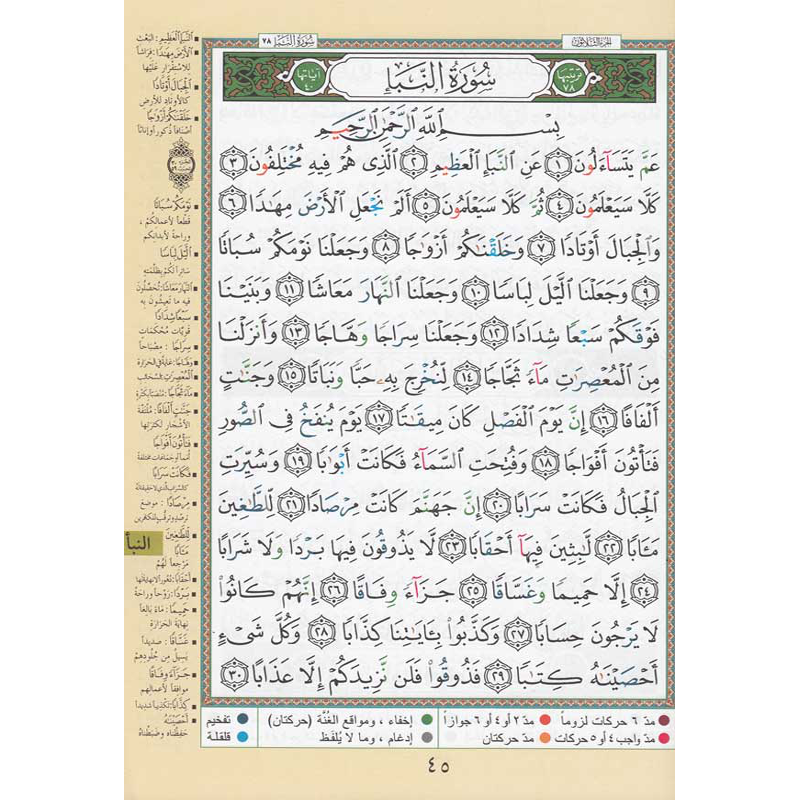 الجزء الثلاثون
سورة النبأ ٧٨
ترتيبها ٧٨
سُورَةُ النَّبَإِ
آياتها ٤٠
بِسْمِ ٱللَّهِ ٱلرَّحْمَٰنِ ٱلرَّحِيمِ
عَمَّ يَتَسَآءَلُونَ ١ عَنِ ٱلنَّبَإِ ٱلْعَظِيمِ ٢ ٱلَّذِى هُمْ فِيهِ مُخْتَلِفُونَ ٣
كَلَّا سَيَعْلَمُونَ ٤ ثُمَّ كَلَّا سَيَعْلَمُونَ ٥ أَلَمْ نَجْعَلِ ٱلْأَرْضَ مِهَٰدًا ٦
وَٱلْجِبَالَ أَوْتَادًا ٧ وَخَلَقْنَٰكُمْ أَزْوَٰجًا ٨ وَجَعَلْنَا نَوْمَكُمْ سُبَاتًا
٩ وَجَعَلْنَا ٱلَّيْلَ لِبَاسًا ١٠ وَجَعَلْنَا ٱلنَّهَارَ مَعَاشًا ١١ وَبَنَيْنَا
فَوْقَكُمْ سَبْعًا شِدَادًا ١٢ وَجَعَلْنَا سِرَاجًا وَهَّاجًا ١٣ وَأَنزَلْنَا
مِنَ ٱلْمُعْصِرَٰتِ مَآءً ثَجَّاجًا ١٤ لِّنُخْرِجَ بِهِۦ حَبًّا وَنَبَاتًا ١٥ وَجَنَّٰتٍ
أَلْفَافًا ١٦ إِنَّ يَوْمَ ٱلْفَصْلِ كَانَ مِيقَٰتًا ١٧ يَوْمَ يُنفَخُ فِى ٱلصُّورِ
فَتَأْتُونَ أَفْوَاجًا ١٨ وَفُتِحَتِ ٱلسَّمَآءُ فَكَانَتْ أَبْوَٰبًا ١٩ وَسُيِّرَتِ
ٱلْجِبَالُ فَكَانَتْ سَرَابًا ٢٠ إِنَّ جَهَنَّمَ كَانَتْ مِرْصَادًا ٢١ لِّلطَّٰغِينَ
مَـَٔابًا ٢٢ لَّٰبِثِينَ فِيهَآ أَحْقَابًا ٢٣ لَّا يَذُوقُونَ فِيهَا بَرْدًا وَلَا شَرَابًا
٢٤ إِلَّا حَمِيمًا وَغَسَّاقًا ٢٥ جَزَآءً وِفَاقًا ٢٦ إِنَّهُمْ كَانُوا۟
لَا يَرْجُونَ حِسَابًا ٢٧ وَكَذَّبُوا۟ بِـَٔايَٰتِنَا كِذَّابًا ٢٨ وَكُلَّ شَىْءٍ
أَحْصَيْنَٰهُ كِتَٰبًا ٢٩ فَذُوقُوا۟ فَلَن نَّزِيدَكُمْ إِلَّا عَذَابًا ٣٠
النَّبَإِ العَظِيم: البَعْث
الأَرْضَ مِهَٰدًا: فِرَاشًا
للاسْتِقْرَارِ عَلَيْهَا
الجِبَالَ أَوْتَادًا
كالأوتادِ للأرضِ
خَلَقْنَٰكُمْ أَزْوَٰجًا
أَصْنَافًا ذُكُورًا وَإِنَاثًا
نَوْمَكُمْ سُبَاتًا
قَطْعًا لأعمالِكُمْ،
وراحةً لأبدانِكُم
الَّيْلَ لِبَاسًا
سَاتِرًا لَكُمْ بِظُلْمَتِهِ
النَّهَارَ مَعَاشًا: تُحَصِّلُونَ
فيه ما تَعِيشُونَ بِهِ
سَبْعًا شِدَادًا
قَوِيَّاتٍ مُحْكَمَاتٍ
سِرَاجًا: مِصْبَاحًا
وَهَّاجًا: غايةً في الحَرَارَةِ
المُعْصِرَٰتِ: السَّحَائِبِ
مَآءً ثَجَّاجًا: مُنْصَبًّا بِكَثْرَة
جَنَّٰتٍ أَلْفَافًا: مُلْتَفَّةَ
الأشْجَارِ لكَثْرَتِهَا
فَتَأْتُونَ أَفْوَاجًا
أُمَمًا أو جَمَاعَاتٍ مختلفة
فَكَانَتْ سَرَابًا
كالسَّرَابِ الَّذي لا حَقِيقَةَ لَه
مِرْصَادًا: موضِعَ
تَرَصُّدٍ وتَرَقُّبٍ للكافرين
لِّلطَّٰغِينَ
مَـَٔابًا
مَرْجِعًا لَهُمْ
أَحْقَابًا: دُهُورًا لا نِهَايَةَ لها
بَرْدًا: رَوْحًا وراحَةً
حَمِيمًا: مَاءً بَالِغًا
نِهَايَةَ الحَرَارَة
غَسَّاقًا: صديدًا
يَسِيلُ من جُلُودِهِمْ
جَزَآءً وِفَاقًا
موافِقًا لأعمالِهم
كِذَّابًا: تَكْذِيبًا شَدِيدًا
أَحْصَيْنَٰهُ
حَفِظْنَاه وضَبَطْنَاهُ
النبأ
مدّ ٦ حركات لزوماً
مدّ ٢ أو ٤ أو ٦ جوازاً
إخفاء، ومواقع الغُنَّة (حركتان)
تفخيم
مدّ واجب ٤ أو ٥ حركات
مدّ حركتان
إدغام، وما لا يُلفَظ
قلقلة
٤٥